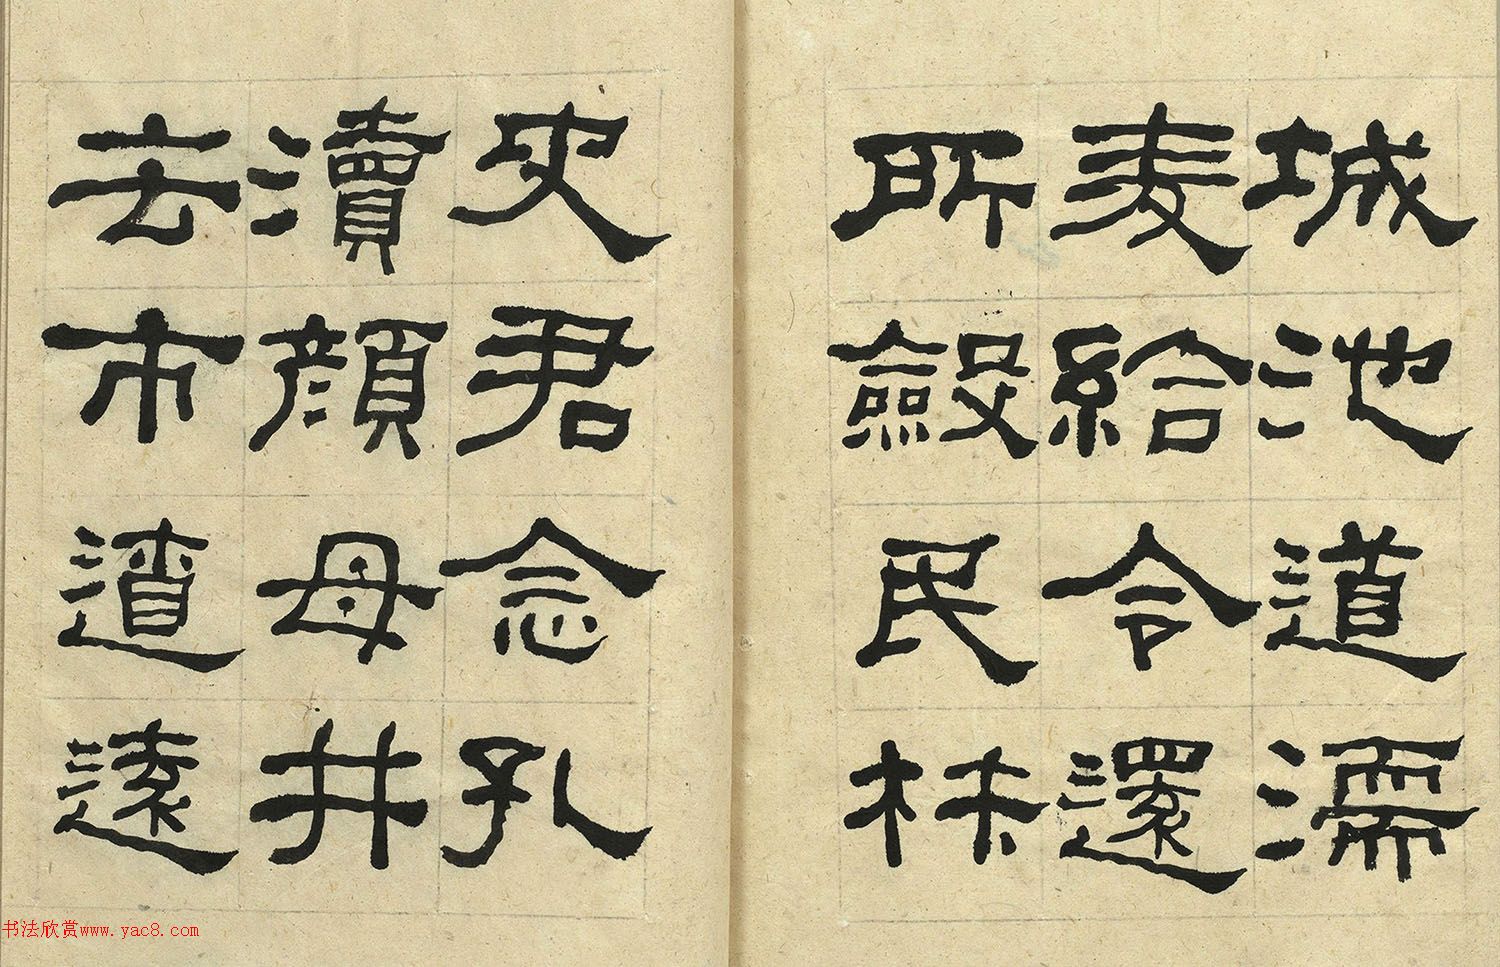 城池道濡
麦給令還
所斂民材
史君念孔
瀆顏母井
去市遼遠
书法欣赏www.yac8.com